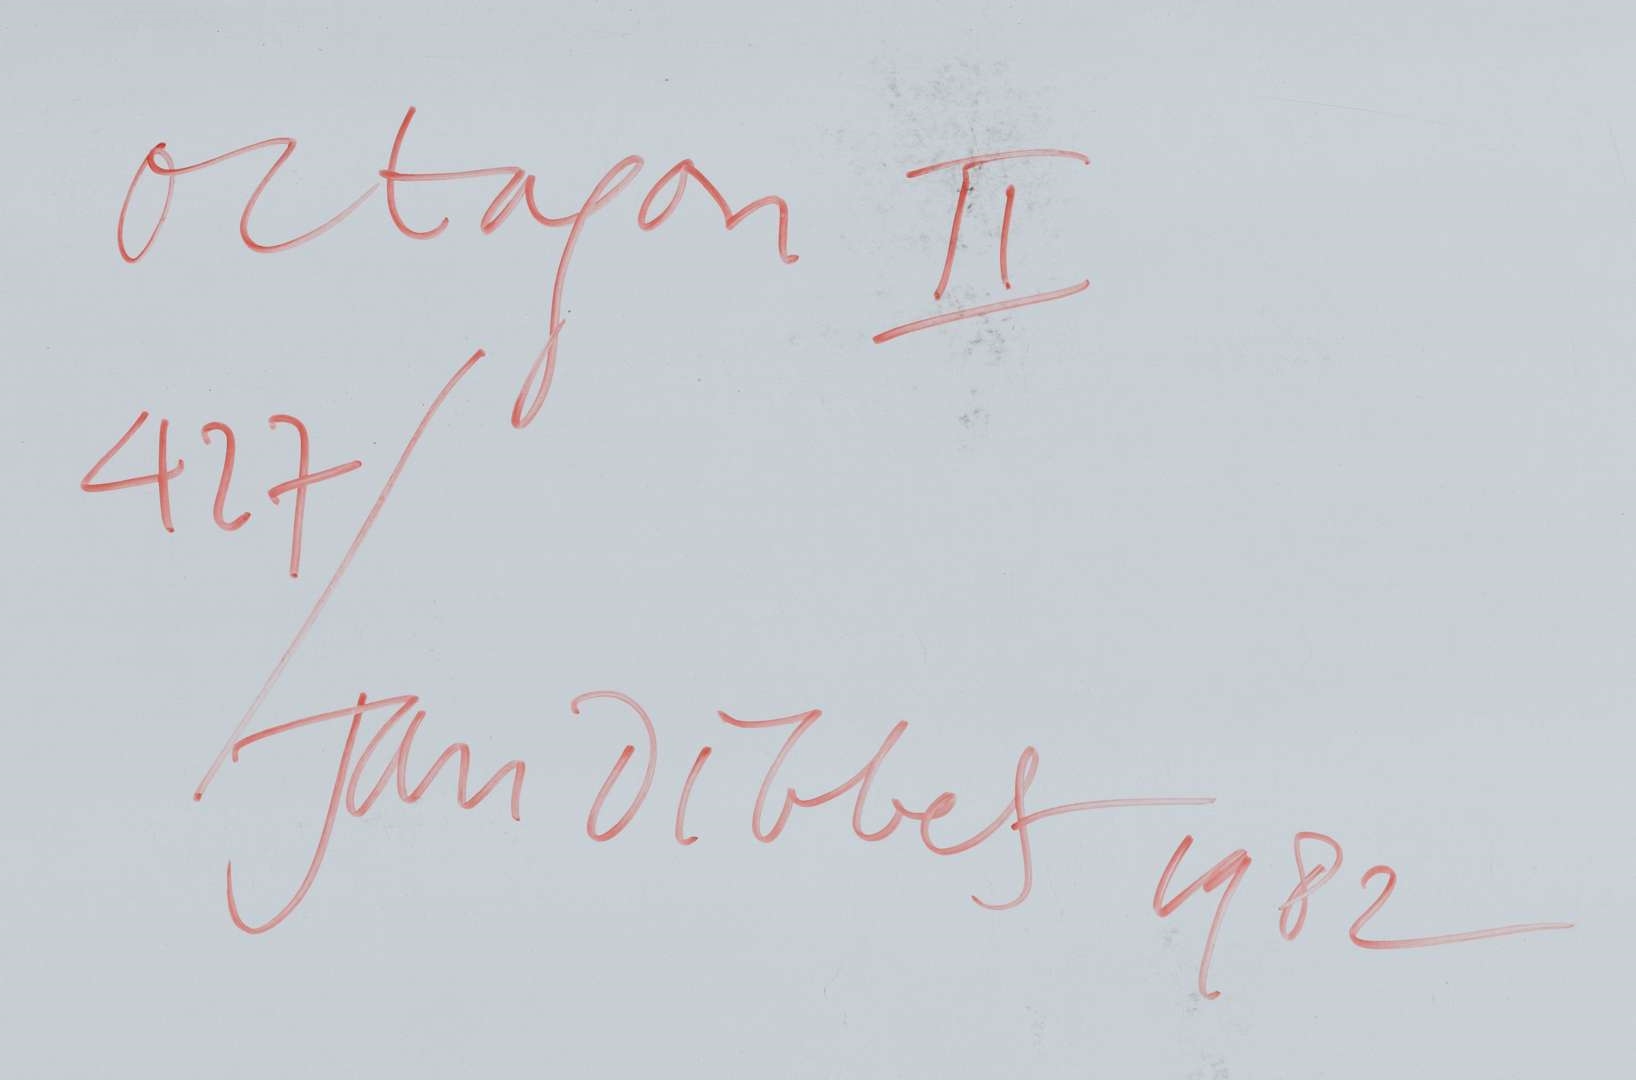 octagon II
427/
Jan Dibbets
1982